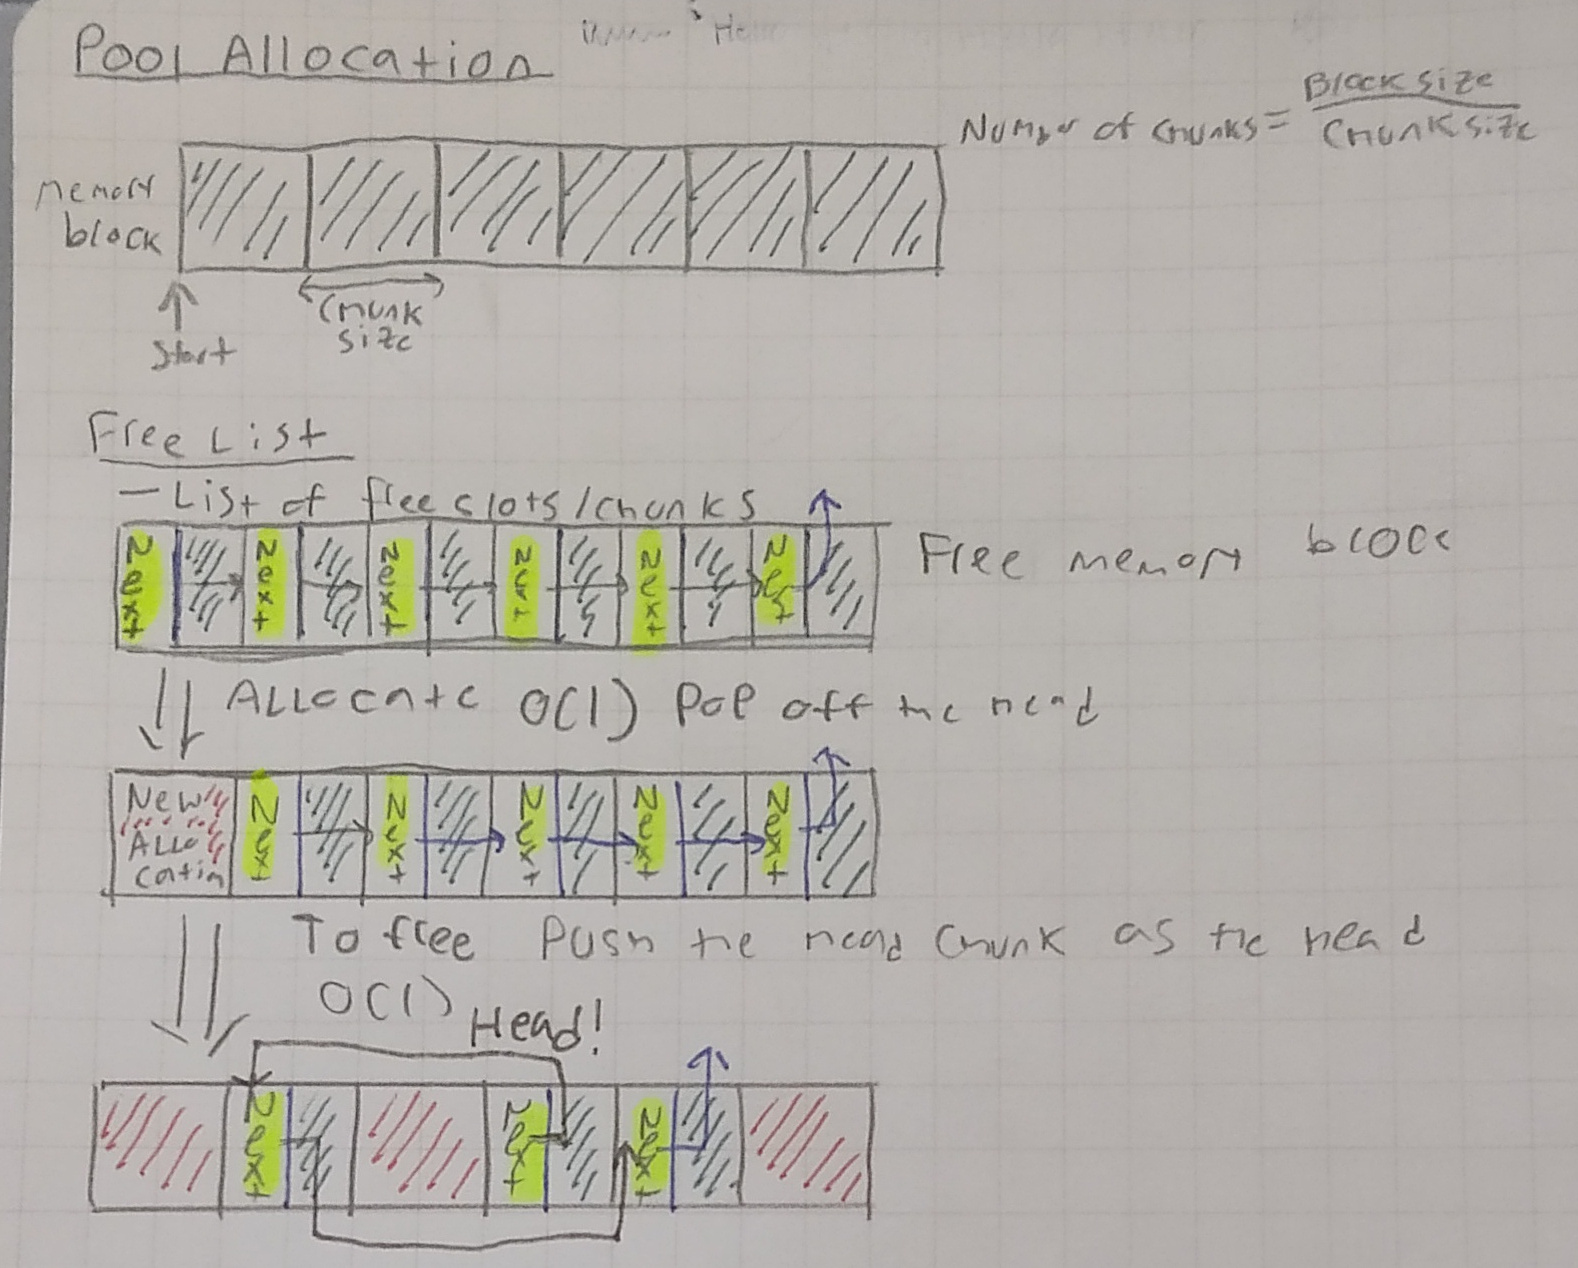 Pool Allocation
Number of chunks = Block size
Chunk size
memory
block
Chunk
size
Start
Free List
- List of free slots/chunks
Next Next Next Next Next Next
Free memory block
Allocate O(1) Pop off the head
New
Allo
cation
Next Next Next Next Next
To free Push the head chunk as the head
O(1)
Head!
Next Next Next